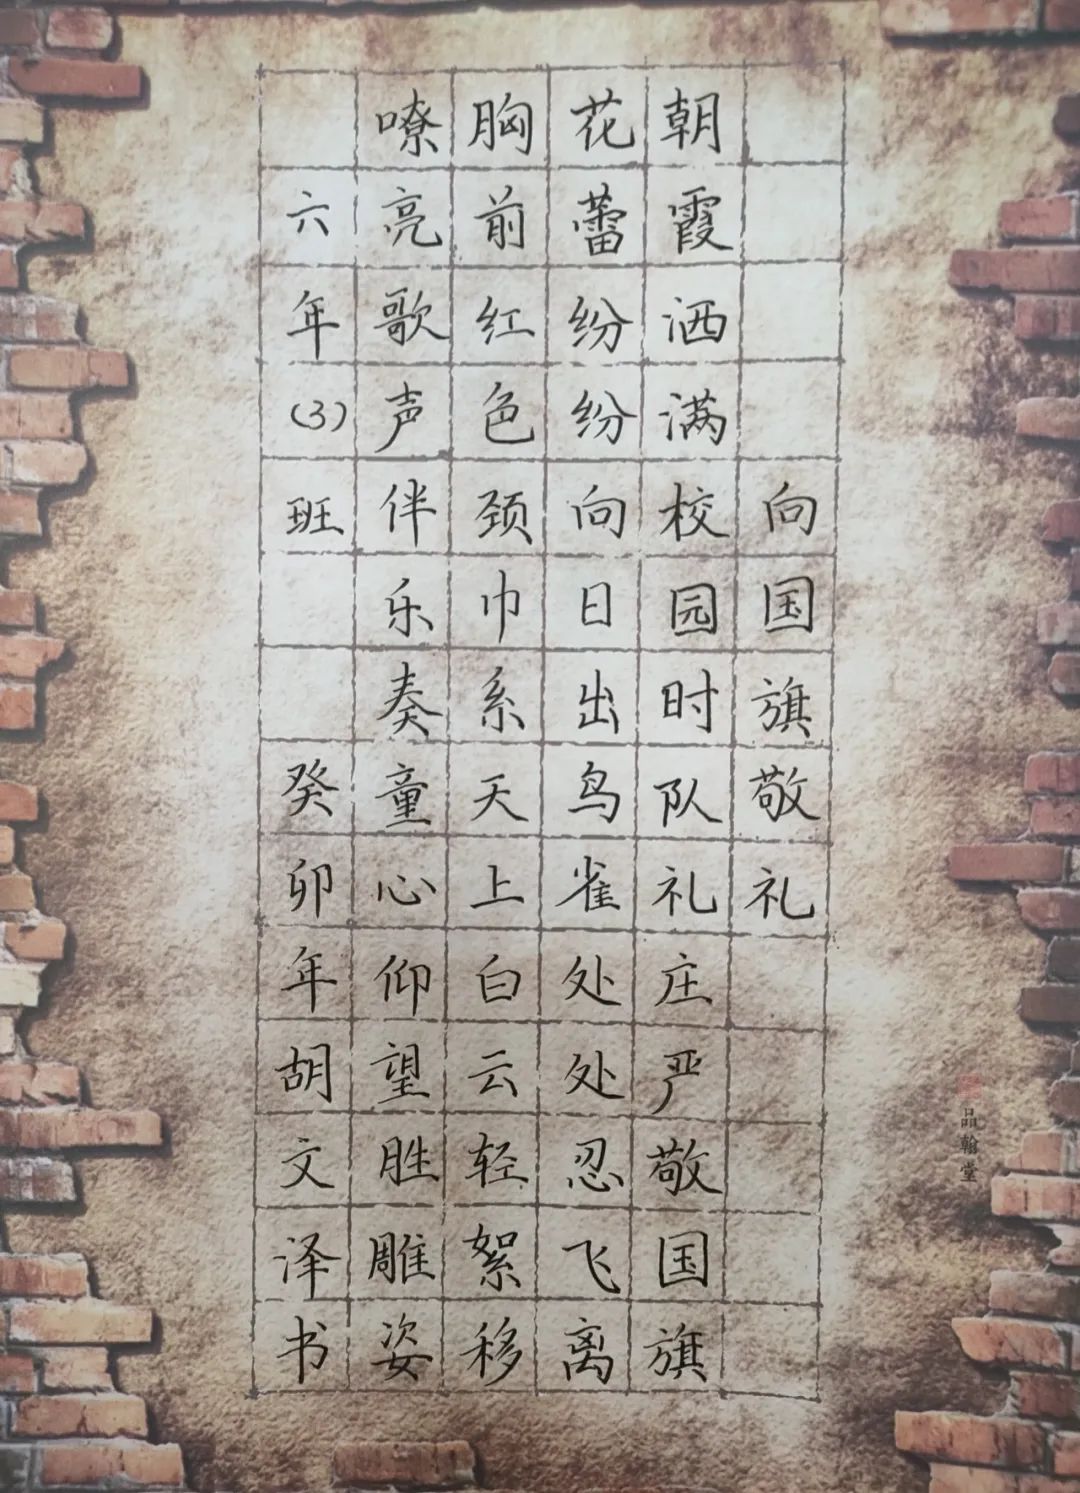 向国旗敬礼
朝霞洒满校园时队礼庄严敬国旗
花蕾纷纷向日出鸟雀处处忍飞离
胸前红色颈巾系天上白云轻絮移
嘹亮歌声伴乐奏童心仰望胜雕姿
六年(3)班 癸卯年胡文泽书
品翰堂